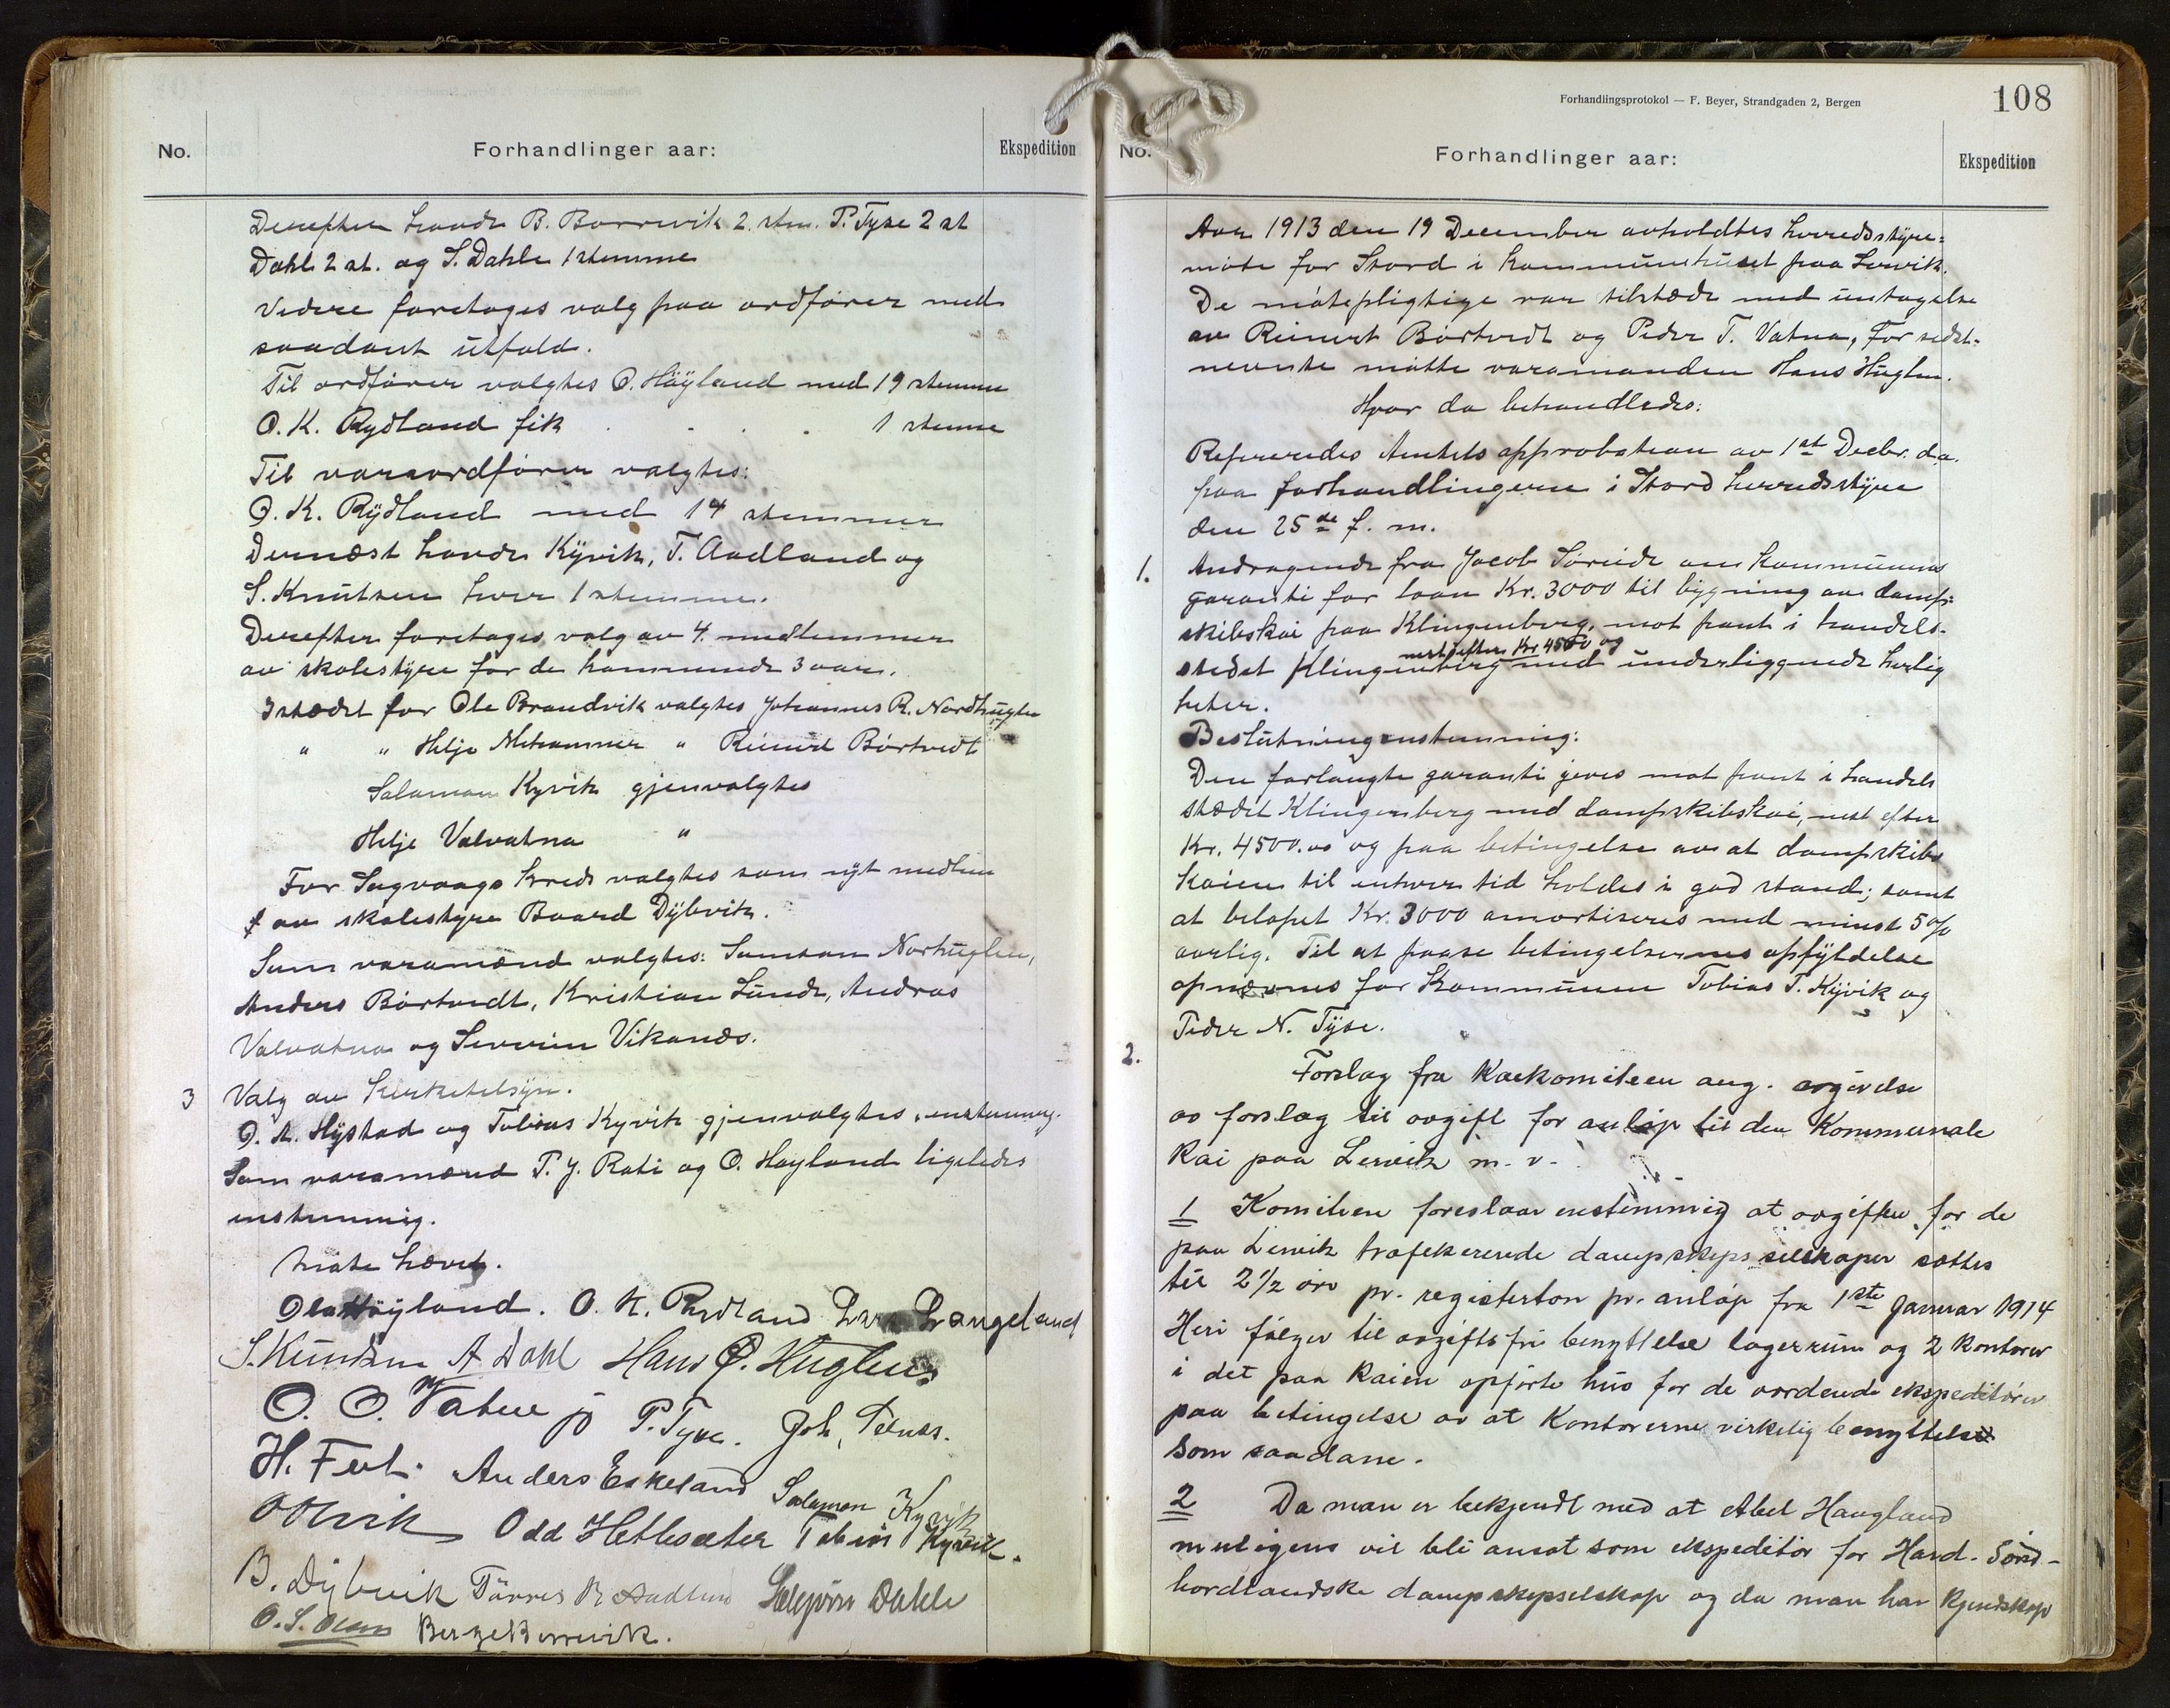 No.
Forhandlinger aar:
Ekspedition
Derefter havde B. Borrevik 2 stm. P. Tyse 2 st
Dahl 2 st. og S. Dahle 1 stemme
Videre foretages valg paa ordfører med
saadant utfald.
Til ordfører valgtes O. Höyland med 19 stemme
O. K. Rydland fik . . . . 1 stemme
Til varaordfører valgtes:
O. K. Rydland med 14 stemmer
Dernæst havde Kyvik, T. Aadland og
S. Knutsen hver 1 stemme.
Derefter foretages valg av 4 medlemmer
av skolestyre for de kommende 3 aar.
Istædet for Ole Brandvik valgtes Johannes R. Nordhuglen
" " Helje Mehammer " Reinert Börtvedt
Salamon Kyvik gjenvalgtes
Helje Valvatna "
For Sagvaags kreds valgtes som nyt medlem
av skolestyre Baard Dybvik.
Som varamænd valgtes: Samson Norhuglen,
Anders Börtvedt, Kristian Lunde, Andras
Valvatna og Severin Vikanes.
3 Valg av Kirketilsyn.
O. A. Hystad og Tobias Kyvik gjenvalgtes enstemmig.
Som varamænd P. J. Rati og O. Høyland ligeledes
enstemmig.
Møte hævet.
Ola Höyland. O. K. Rydland Lars Langeland
S. Knutsen A Dahl Hans Ø. Huglen
O. O. Vatne jr P. Tyse. Joh,
H. Anders Eskeland Salamon Kyvik
Odd Hetlesæter Tobias Kyvik.
B. Dybvik Törres R Aadland Dahle
O. S. Olsen Berge Borrevik.
Forhandlingsprotokol — F. Beyer, Strandgaden 2, Bergen
108
No.
Forhandlinger aar:
Ekspedition
Aar 1913 den 19 December avholdtes herredsstyre=
møte for Stord i kommunehuset paa Lervik.
De møtepligtige var tilstæde med untagelse
av Reinert Börtvedt og Peder T. Vatna, for sidst-
nevnte møtte varamanden Hans Huglen.
Hvor da behandledes:
Refereredes Amtets approbation av 1st Decbr. d.a.
paa forhandlingerne i Stord herredsstyre
den 25de f. m.
1. Andragende fra Jacob Söreide om kommunens
garanti for laan Kr. 3000 til bygning av damp-
skibskai paa Klingenberg, mot pant i handels-
nest efter Kr 4500 og
stedet Klingenberg med underliggende herlig
heter.
Beslutning enstemmig:
Den forlangte garanti gives mot pant i handels
stædet Klingenberg med dampskibskai, nest efter
Kr. 4500.00 og paa betingelse av at dampskibs
kaien til enhver tid holdes i god stand; samt
at beløpet Kr. 3000 amortiseres med minst 5 %
aarlig. Til at paase betingelsernes opfyldelse
opnævnes for Kommunen Tobias T. Kyvik og
Peder N. Tyse.
2. Forslag fra Kaikomiteen ang. avgivelse
av forslag til avgift for anløp til den Kommunale
Kai paa Lervik m. v.
1 Komiteen foreslaar enstemmig at avgiften for de
paa Lervik trafikerende dampskipsselskaper sættes
til 2 1/2 øre pr. registerton pr. anløp fra 1ste Januar 1914
Heri følger til avgiftsfri benyttelse lagerrum og 2 kontorer
i det paa kaien opførte hus for de vordende ekspeditører
paa betingelse av at Kontorerne virkelig benyttelse
som saadane.
2 Da man er bekjendt med at Abel Haugland
muligens vil bli ansat som ekspeditør for Hard. Sönd-
hordlandske dampskipsselskap og da man har kjendskap